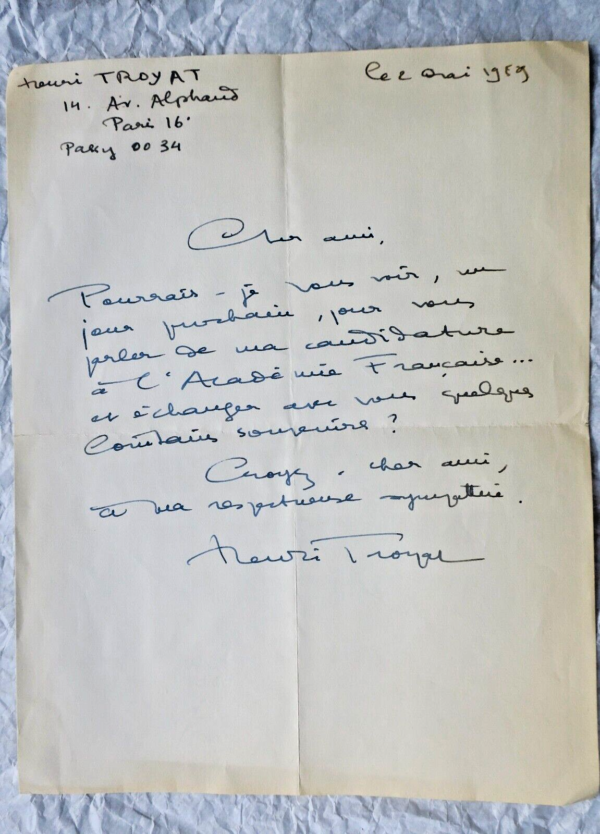 Henri TROYAT
le 2 mai 1959
14. Av. Alphand
Paris 16.
Passy 00 34
Cher ami,
Pourrais-je vous voir, un
jour prochain, pour vous
parler de ma candidature
à l'Académie Française...
et échanger avec vous quelques
lointains souvenirs ?
Croyez, cher ami,
à ma respectueuse sympathie.
Henri Troyat